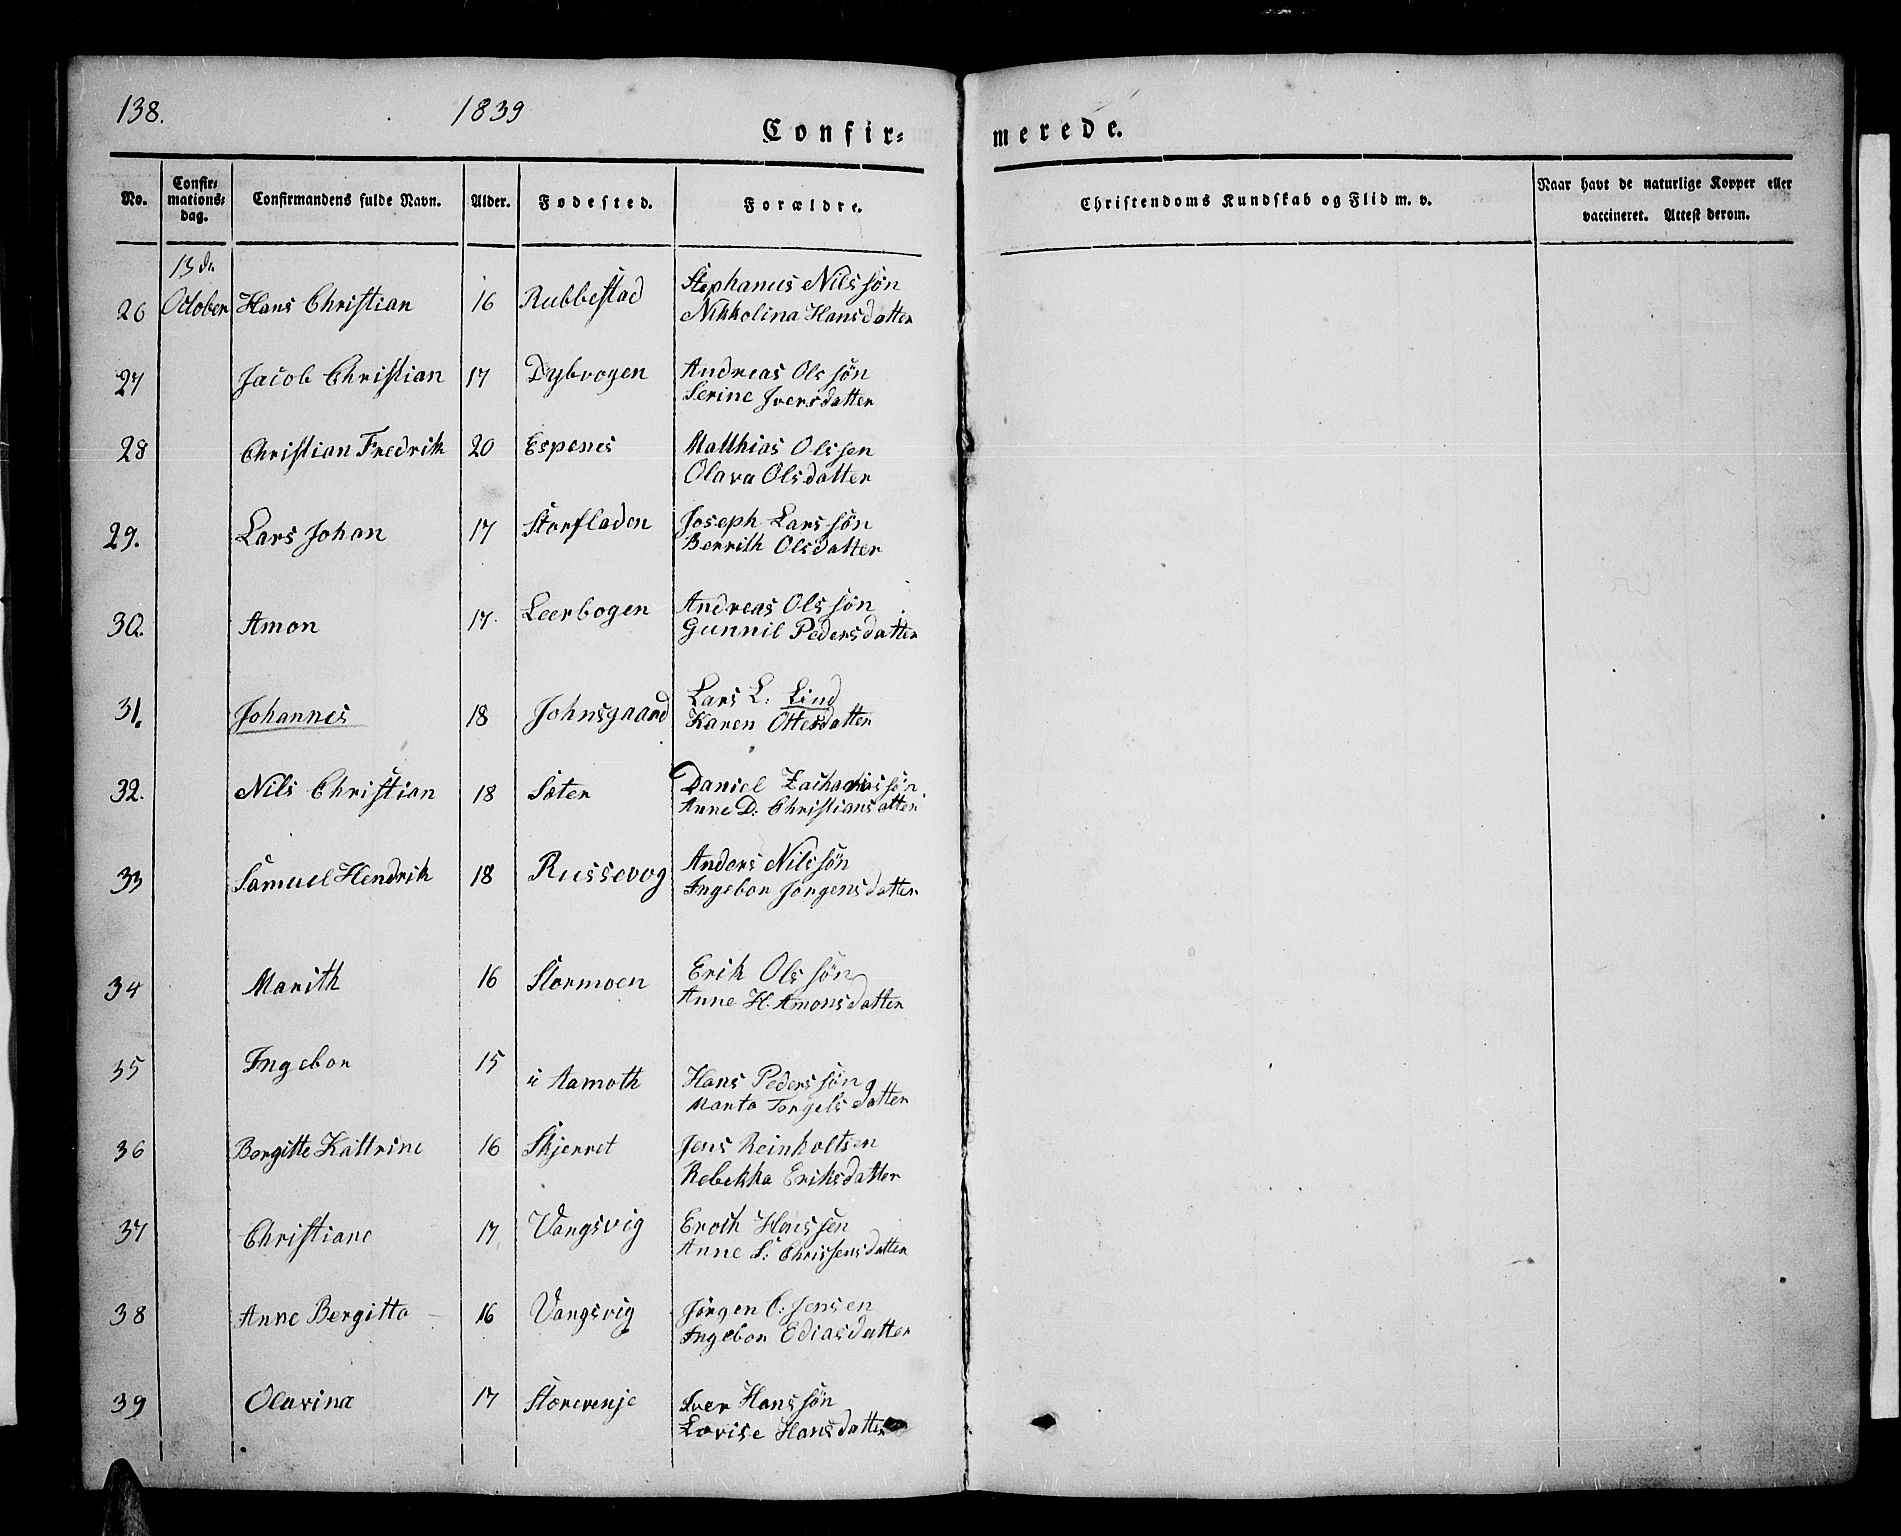 138.
1839
Confir=
merede.
No.
Confir=
mations=
dag.
Confirmandens fulde Navn.
Alder.
Fødested.
Forældre.
Christendoms Kundskab og Flid m. v.
Naar havt de naturlige Kopper eller
vaccineret. Attest derom.
13de
26 October Hans Christian 16 Rubbestad Stephanus Nilssøn
Nikkolina Hansdatter
27 Jacob Christian 17 Dybvogen Andreas Olssøn
Serine Iversdatter
28 Christian Fredrik 20 Espenes Matthias Olssen
Olava Olsdatter
29. Lars Johan 17 Storfladen Joseph Larssøn
Berrith Olsdatter
30. Amon 17. Leerbogen Andreas Olssøn
Gunnil Pedersdatter
31. Johannes 18 Johnsgaard Lars L: Lind
Karen Ottesdatter
32. Nils Christian 18 Sæter Daniel Zachariassøn
Anne D: Christiansatter
33 Samuel Hendrik 18 Russevog Anders Nilssøn
Ingebor Jørgensdatter
34 Marith 16 Stormoen Erik Olssøn
Anne H. Amonsdatter
35 Ingebor 15 i Aamoth Hans Pederssøn
Marta Torgelsdatter
36 Bergitte Kattrine 16 Skjerret Jens Reinholtsen
Rebekka Eriksdatter
37 Christiane 17. Vangsvig Eroth Hanssen
Anne S: Chrissensdatter
38 Anne Bergitta 16 Vangsvig Jørgen C: Jensen
Ingebor Ediasdatter
39 Olavina 17 Storevenje Iver Hanssøn
Lovise Hansdatter